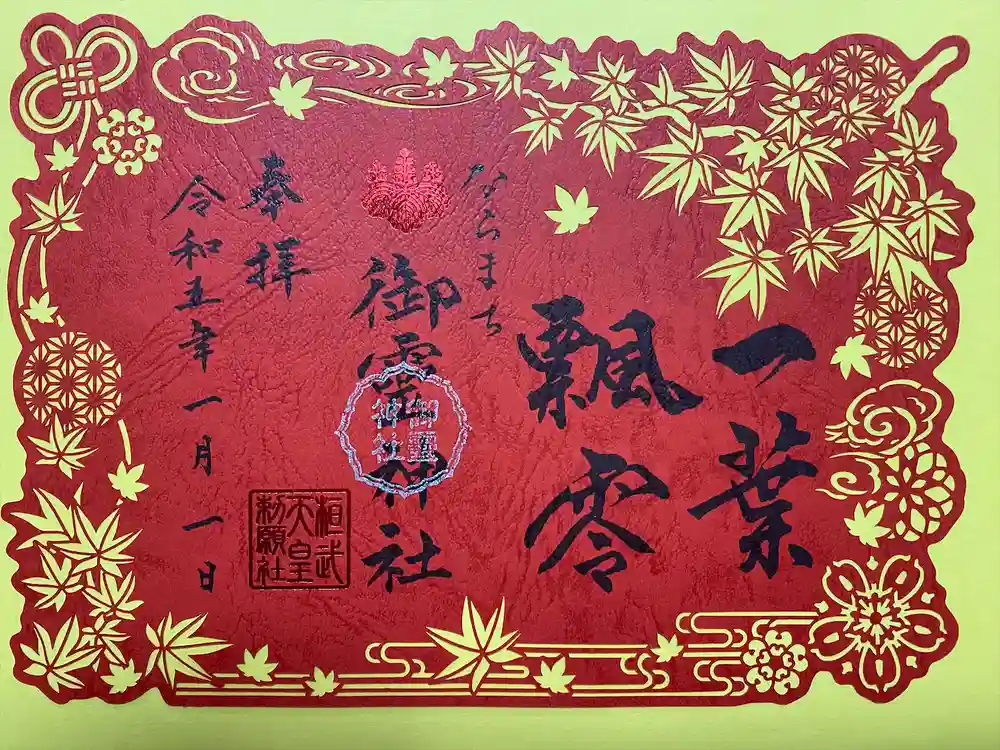 一葉
飄零
ならまち
御霊神社
御霊
神社
奉拝
桓武
天皇
勅願社
令和五年一月一日